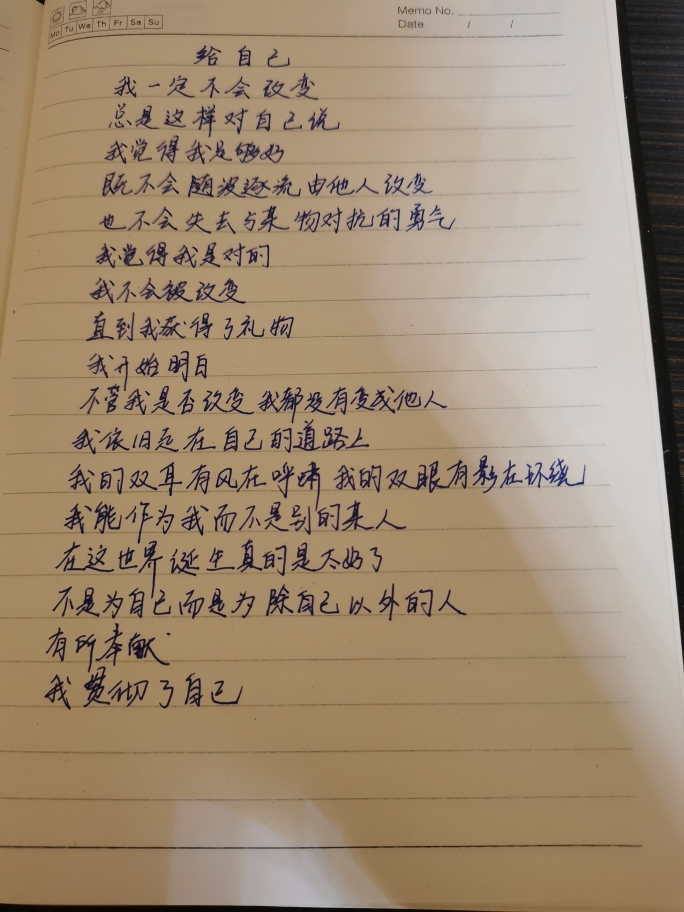 Memo No.
Mo Tu We Th Fr Sa Su
Date / /
给自己
我一定不会改变
总是这样对自己说
我觉得我足够好
既不会随波逐流由他人改变
也不会失去与某物对抗的勇气
我觉得我是对的
我不会被改变
直到我获得了礼物
我开始明白
不管我是否改变 我都没有变成他人
我依旧走在自己的道路上
我的双耳有风在呼啸 我的双眼有影在环绕
我能作为我而不是别的某人
在这世界诞生真的是太好了
不是为自己而是为除自己以外的人
有所奉献
我贯彻了自己